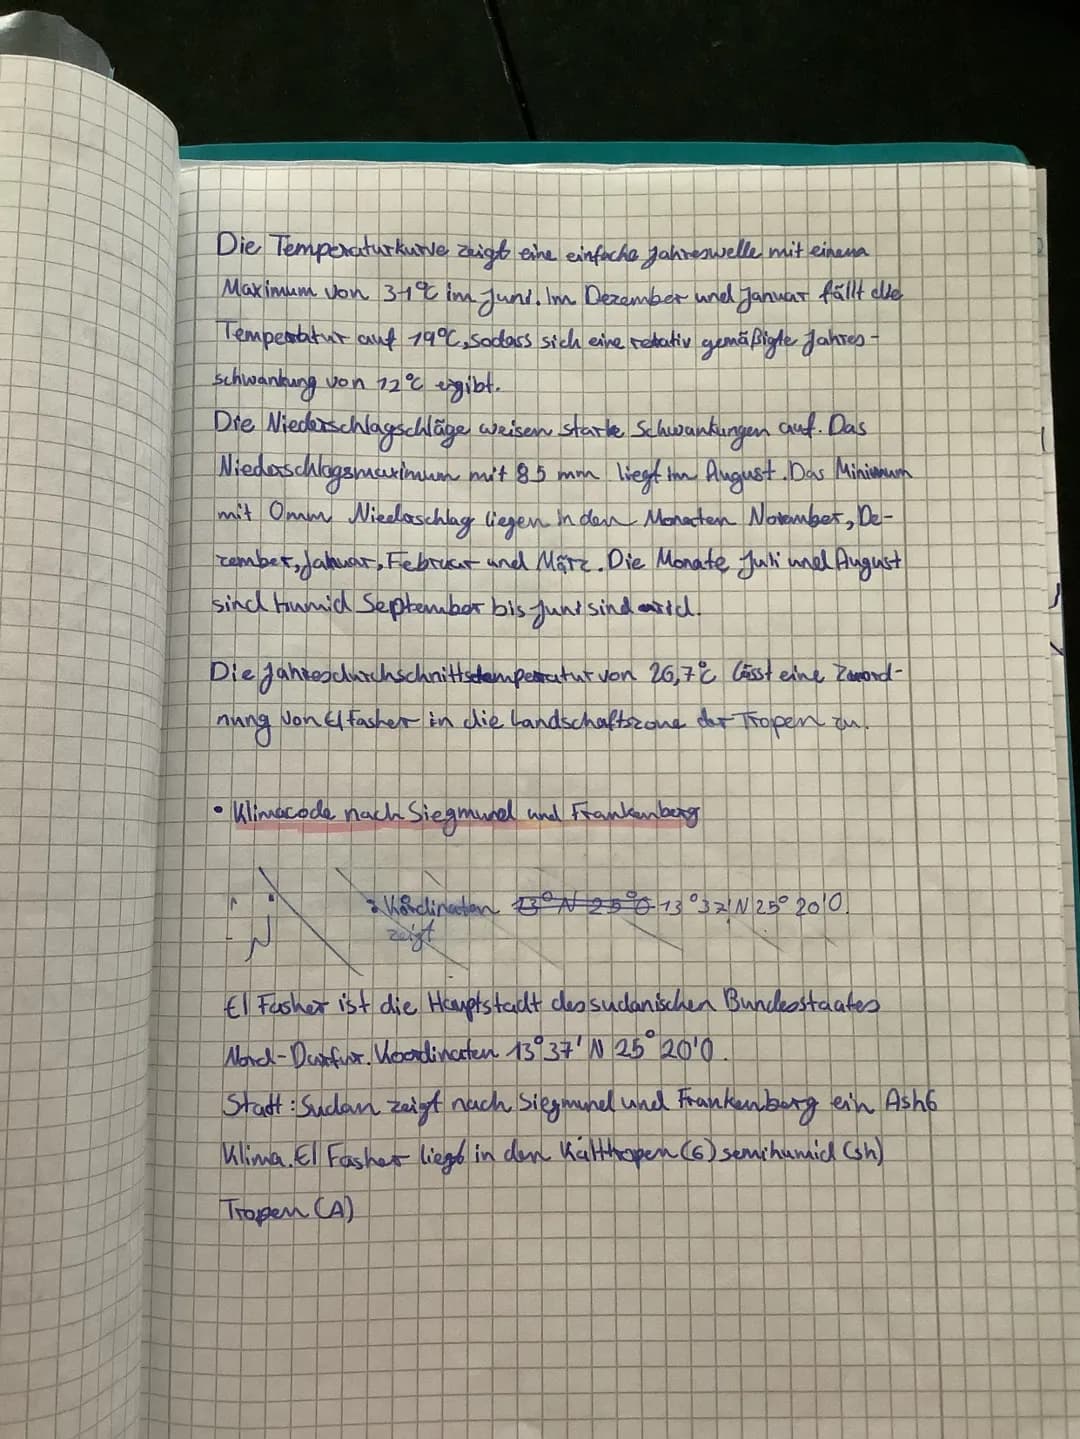 Die Temperaturkurve zeigt eine einfache Jahreswelle mit einem
Maximum von 31°C im Juni. Im Dezember und Januar fällt die
Temperatur auf 19°C, sodass sich eine relativ gemäßigte Jahres-
schwankung von 12°C ergibt.
Die Niederschlagschläge weisen starke Schwankungen auf. Das
Niederschlagsmaximum mit 85 mm liegt im August. Das Minimum
mit 0mm Niederschlag liegen in den Monaten November, De-
zember, Januar, Februar und März. Die Monate Juli und August
sind humid September bis Juni sind arid.
Die Jahresdurchschnittstemperatur von 26,7°C lässt eine Zuord-
nung von El Fasher in die Landschaftszone der Tropen zu.
• Klimacode nach Siegmund und Frankenberg
: Koordinaten 13°N 25°O 13°37'N 25° 20'O.
zeigt
El Fasher ist die Hauptstadt des sudanischen Bundesstaates
Nord-Darfur. Koordinaten 13°37'N 25°20'O.
Statt: Sudan zeigt nach Siegmund und Frankenberg ein Ash6
Klima. El Fasher liegt in den Kalttropen (6) semihumid (sh)
Tropen (A)